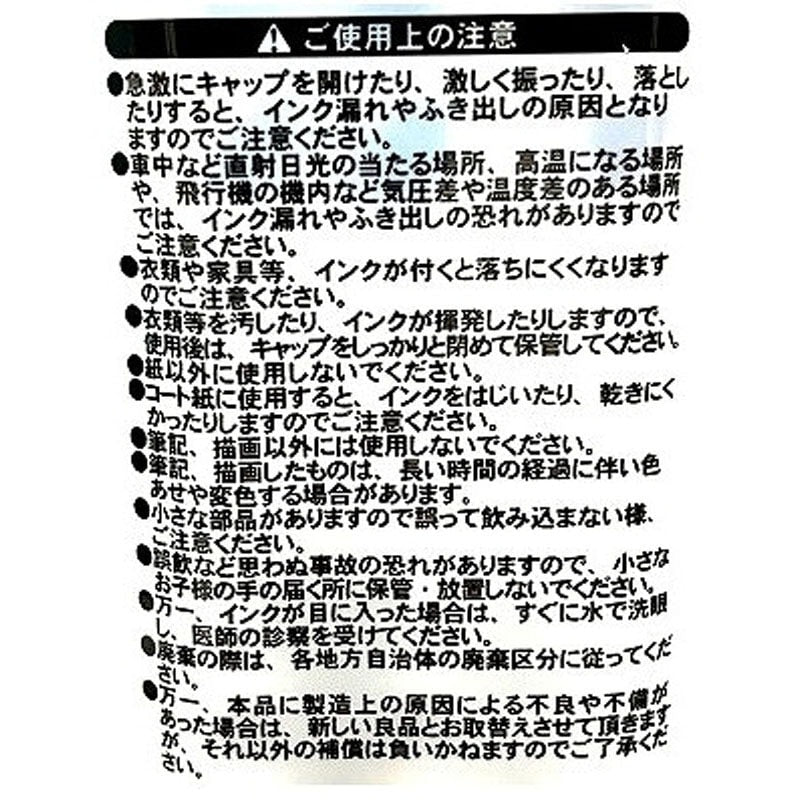 ⚠ ご使用上の注意
●急激にキャップを開けたり、激しく振ったり、落とし
たりすると、インク漏れやふき出しの原因となり
ますのでご注意ください。
●車中など直射日光の当たる場所、高温になる場所
や、飛行機の機内など気圧差や温度差のある場所
では、インク漏れやふき出しの恐れがありますので
ご注意ください。
●衣類や家具等、インクが付くと落ちにくくなります
のでご注意ください。
●衣類等を汚したり、インクが揮発したりしますので、
使用後は、キャップをしっかりと閉めて保管してください。
●紙以外に使用しないでください。
●コート紙に使用すると、インクをはじいたり、乾きにく
かったりしますのでご注意ください。
●筆記、描画以外には使用しないでください。
●筆記、描画したものは、長い時間の経過に伴い色
あせや変色する場合があります。
●小さな部品がありますので誤って飲み込まない様、
ご注意ください。
●誤飲など思わぬ事故の恐れがありますので、小さな
お子様の手の届く所に保管・放置しないでください。
●万一、インクが目に入った場合は、すぐに水で洗眼
し、医師の診察を受けてください。
●廃棄の際は、各地方自治体の廃棄区分に従ってくだ
さい。
●万一、本品に製造上の原因による不良や不備が
あった場合は、新しい良品とお取替えさせて頂きます
が、それ以外の補償は負いかねますのでご了承くだ
さい。